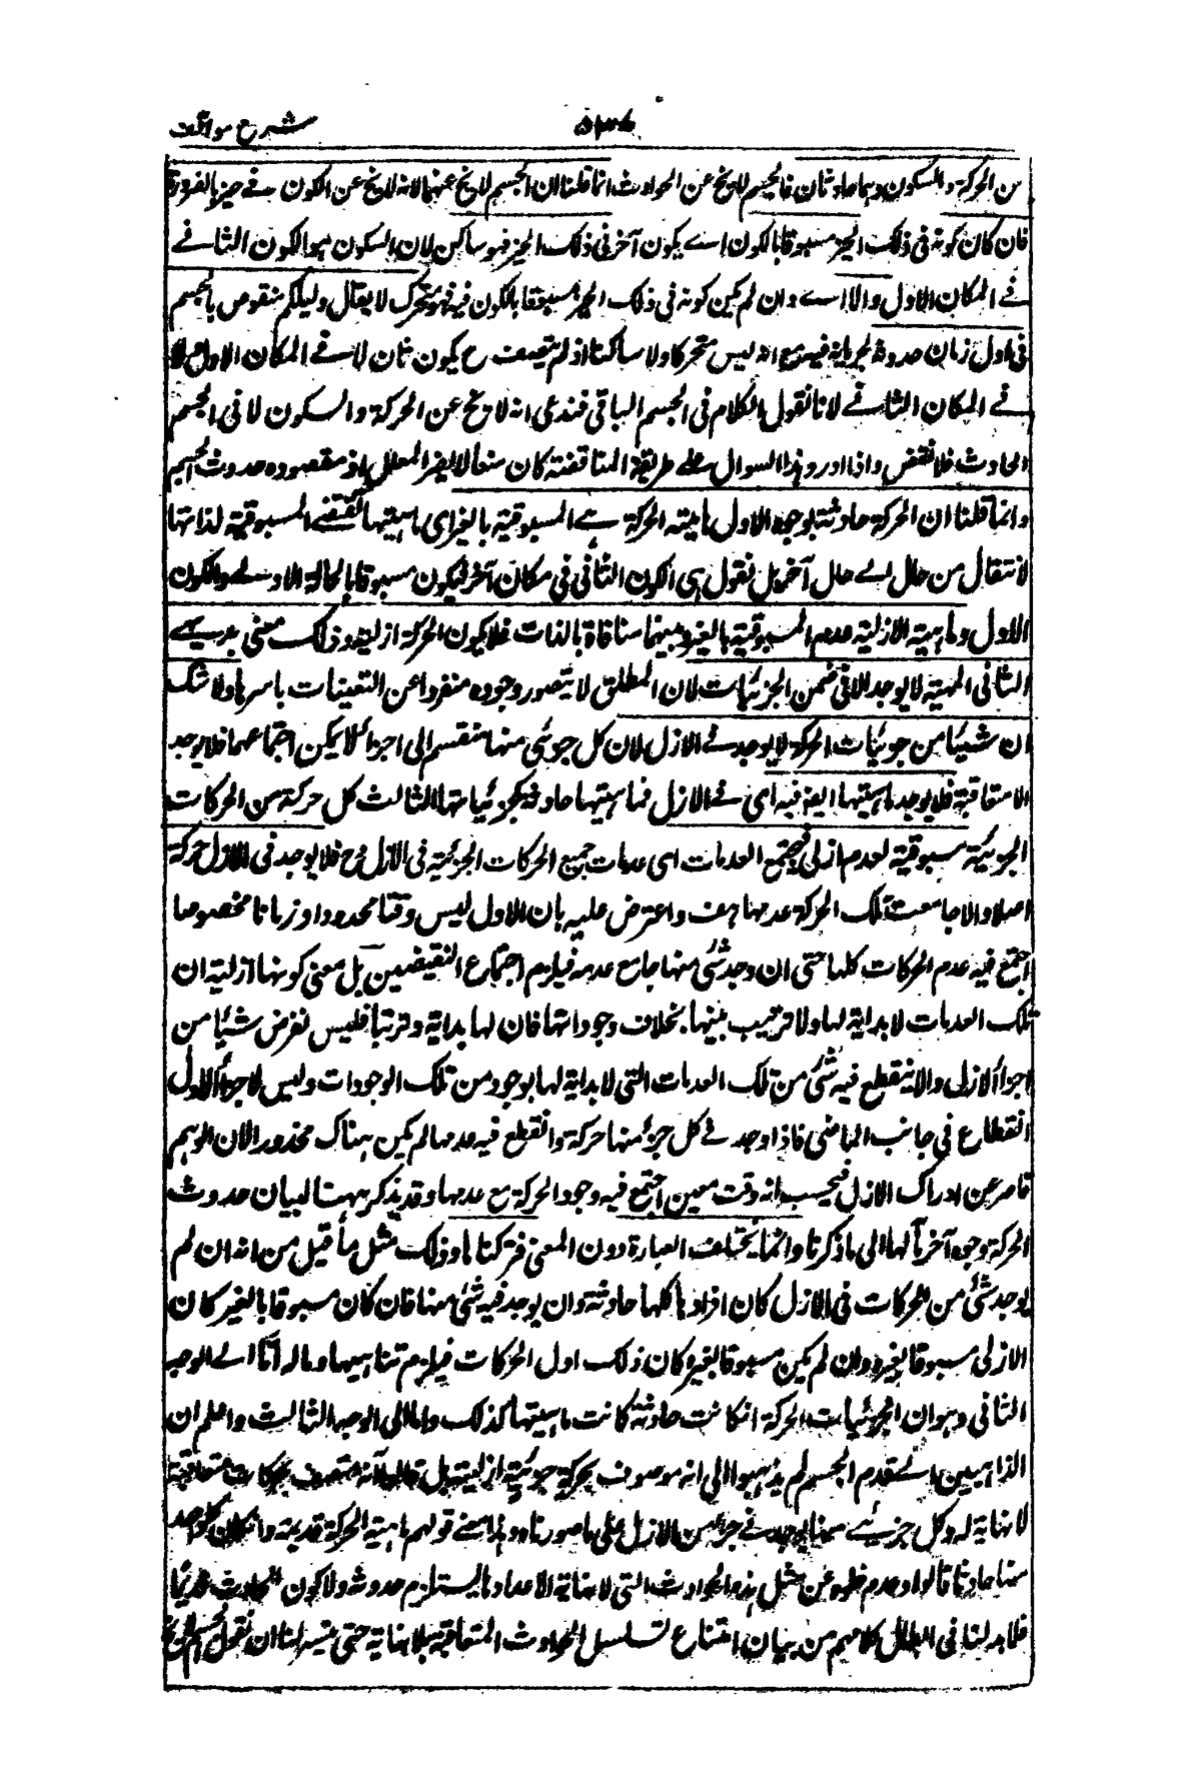 شرح مواقف
٥٣٤
من الحركة والسكون وهما حادثان فالجسم لا يخ عن الحوادث انما قلنا ان الجسم لا يخ عنهما لانه لا يخ عن الكون في حيز بالضرورة
فان كان كونه فى ذلك الحيز مسبوقا بالكون اے يكون آخر فى ذلك الحيز فهو ساكن لان السكون هو الكون الثانے
فے المكان الاول والا اے وان لم يكن كونه فى ذلك الحيز مسبوقا بالكون فيه فهو متحرك لا يقال دليلكم منقوض بالجسم
فى اول زمان حدوثه لجريانه فيه مع انه ليس متحركا ولا ساكنا اذ لم يتصف ح بكون ثان لا فے المكان الاول ولا
فے المكان الثانے لانا نقول الكلام فى الجسم الباقى فندعى انه لا يخ عن الحركة والسكون لا فى الجسم
الحادث فلا نقض واذا اورد هذا السوال علے طريقة المناقضة كان منعا لا يضر المعلل اذ مقصوده حدوث الجسم
وانما قلنا ان الحركة حادثة لوجوه الاول ماهية الحركة هے المسبوقية بالغير اى ماهيتها تقتضے المسبوقية لذاتها
لانتقال من حال الے حال آخر بل نقول هى الكون الثانى فى مكان آخر فيكون مسبوقا بالحالة الاولے والكون
الاول وماهية الازلية عدم المسبوقية بالغير وبينهما منافاة بالذات فلا يكون الحركة ازلية وذلك معنى بديهے
الثانى المهية لا يوجد الا فى ضمن الجزئيات لان المطلق لا يتصور وجوده منفردا عن التعينات باسرها ولا شك
ان شيئا من جزئيات الحركة لا يوجد فے الازل لان كل جزئى منها منقسم الى اجزاء لا يمكن اجتماعها فلا يوجد
الا متعاقبة فلا يوجد ماهيتها ايضا فيه اى فے الازل فماهيتها حادثة كجزئياتها الثالث كل حركة من الحركات
الجزئية مسبوقية لعدم ازلى فيجتمع العدمات اى عدمات جميع الحركات الجزئية فى الازل فح فلا يوجد فى الازل حركة
اصلا والا جامعت تلك الحركة عدمها هف واعترض عليه بان الاول ليس وقتا محدودا وزمانا مخصوصا
اجتمع فيه عدم الحركات كلها حتى ان وجد شئ منها جامع عدمه فيلزم اجتماع النقيضين بل معنى كونها ازلية ان
تلك العدمات لا بداية لها ولا ترتيب بينها بخلاف وجوداتها فان لها بداية وترتبا فليس نفرض شيئا من
اجزاء الازل والا ينقطع فيه شئ من تلك العدمات التى لا بداية لها بوجود من تلك الوجودات وليس لاجزاء الاول
انقطاع فى جانب الماضى فاذا وجد فے كل جزء منها حركة وانقطع فيه عدمها لم يكن هناك محذور الا ان الوهم
قاصر عن ادراك الازل فيحسب انه وقت معين اجتمع فيه وجود الحركة مع عدمها وقد يذكر ههنا لبيان حدوث
الحركة وجوه آخر مآلها الى ما ذكرنا وانما يختلف العبارة دون المعنى فتركناها وذلك مثل ما قيل من انه ان لم
يوجد شئ من الحركات فى الازل كان افرادها كلها حادثة وان يوجد فيه شئ منها فان كان مسبوقا بالغير كان
الازلى مسبوقا بغيره وان لم يكن مسبوقا بغيره كان ذلك اول الحركات فيلزم تناهيها وماله اما الے الوجه
الثانى وهو ان الجزئيات الحركة اذا كانت حادثة كانت ماهيتها كذلك واما الى الوجه الثالث واعلم ان
الذاهبين الے قدم الجسم لم يذهبوا الى انه موصوف بحركة جزئية ازلية بل قالوا انه متصف بحركات متعاقبة
لا نهاية له وكل جزئے منها يوجد فے جزء من الازل على ما صورناه وهذا معنے قولهم ماهية الحركة قديمة وان كان كل واحد
منها حادثا قالوا وعدم خلوه عن مثل هذه الحوادث التى لا نهاية لاعدادها لا يستلزم حدوثه ولا كون الحادث قديما
فلا بد لنا فى ابطال كلامهم من بيان امتناع تسلسل الحوادث المتعاقبة بلا نهاية حتى يتيسر لنا ان نقول الجسم لا يخ